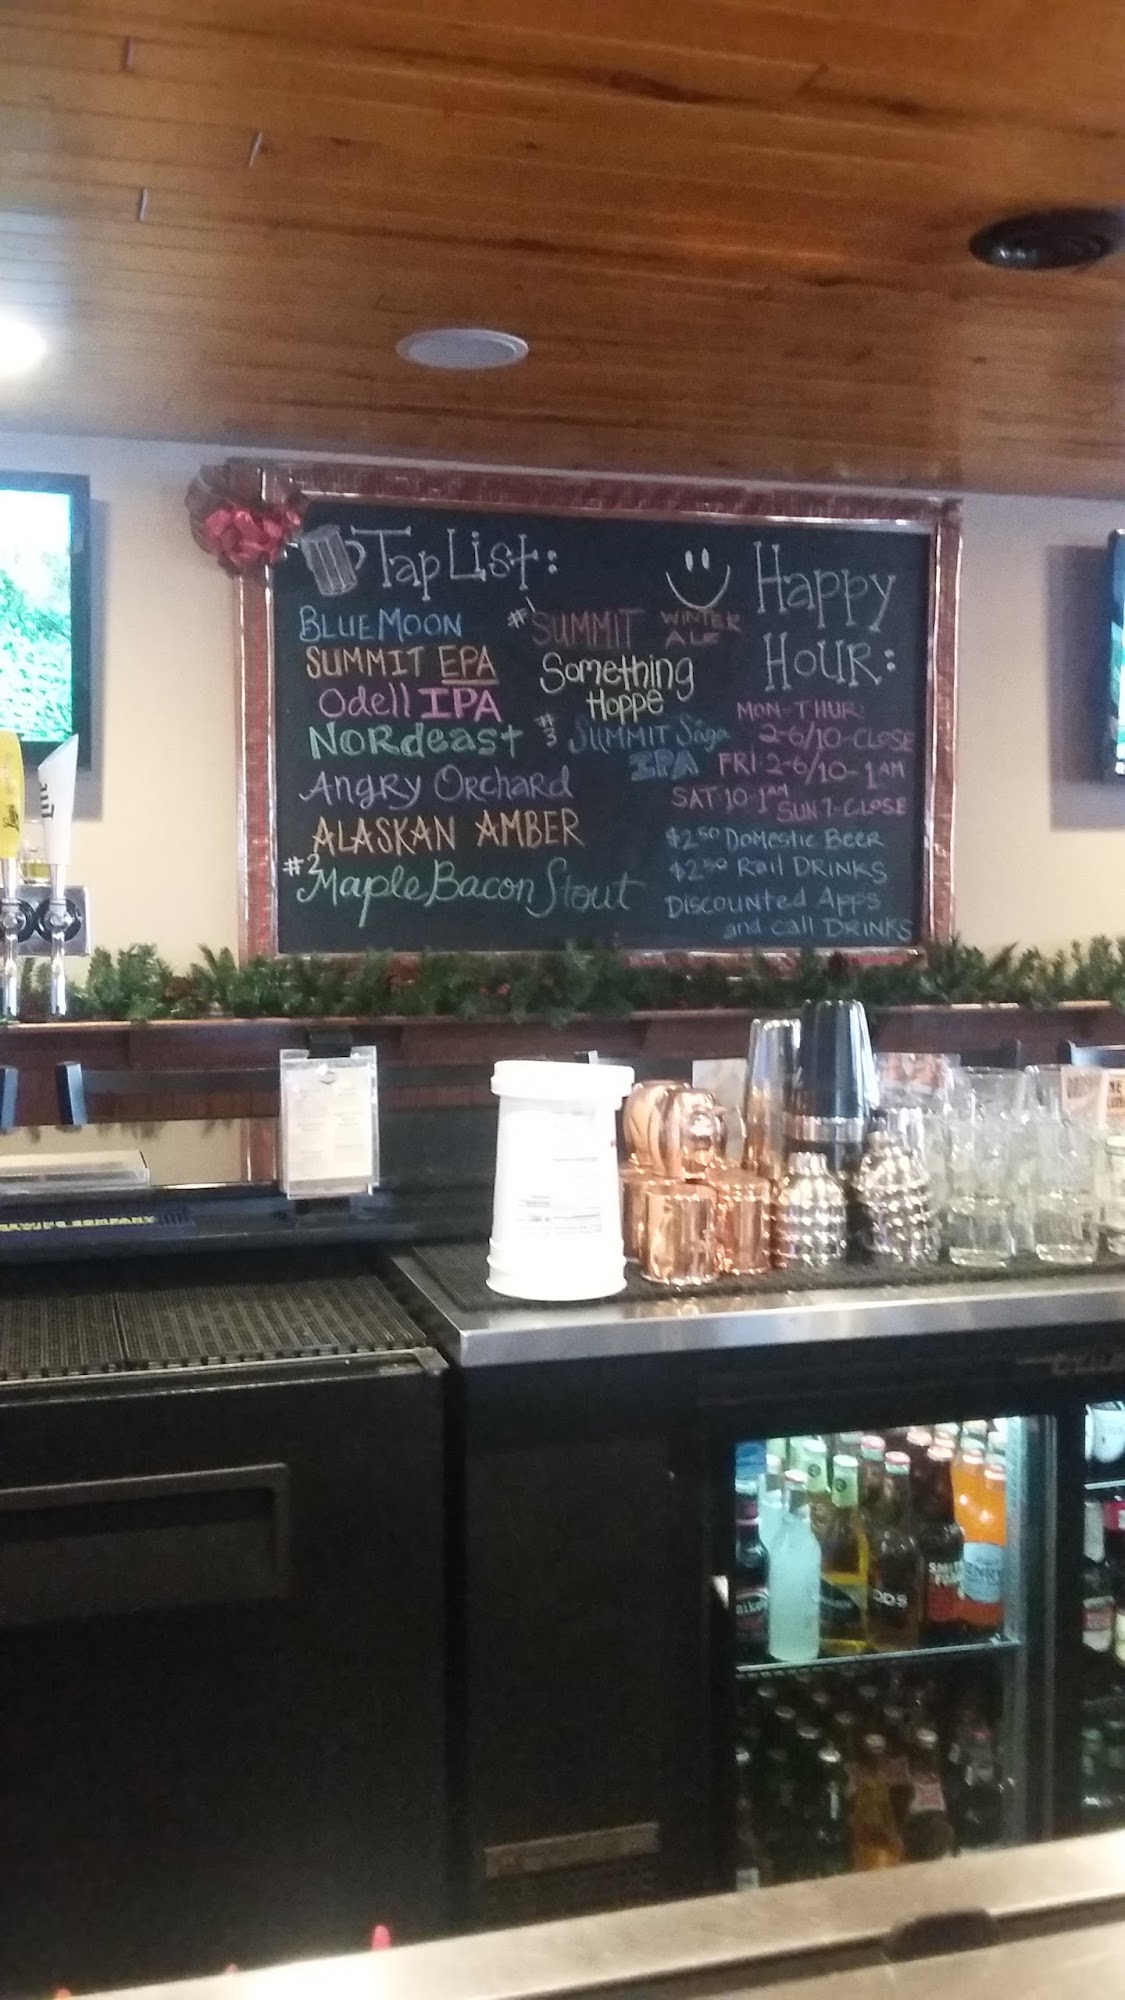 Tap List:
BLUE MOON
SUMMIT EPA
Odell IPA
Nordeast
Angry Orchard
ALASKAN AMBER
#2 Maple Bacon Stout
#1 SUMMIT WINTER ALE
Something Hoppe
#3 SUMMIT Säga IPA
Happy
HOUR:
MON-THUR:
2-6/10-CLOSE
FRI: 2-6/10-1AM
SAT-10-1AM SUN 7-CLOSE
$2.50 Domestic Beer
$2.50 Rail DRINKS
Discounted Apps
and call DRINKS